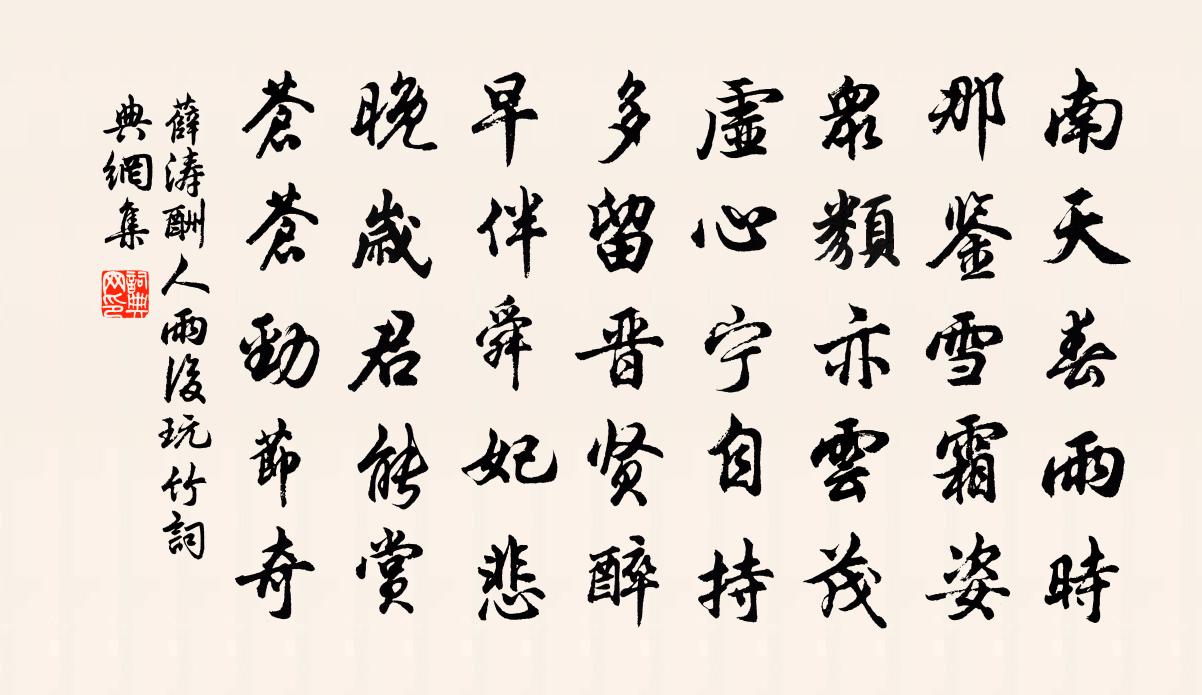 南天春雨時
那鉴雪霜姿
眾類亦雲茂
虛心宁自持
多留晋贤醉
早伴舜妃悲
晚歲君能賞
蒼蒼勁節奇
薛涛酬人雨後玩竹詞
典網集
詞典網印